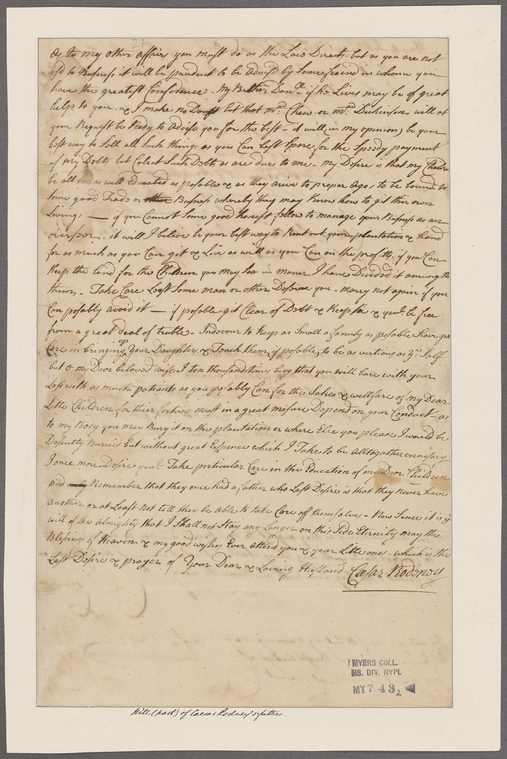 As to my other affairs you must do as the Law Directs, but as you are not
us'd to Business it will be prudent to be advis'd by some friend in whom you
have the greatest Confidence. My Brother Danl. if he Lives may be of great
help to you. & I make no Doubt but that Mr. Chew or Mr. Dickinson, will at
your Request be Ready to Advise you for the best - it will, in my opinion, be your
best way to Sell all Such things as you Can best spare for the Speedy payment
of my Debts but Colect Such Debts as are due to me. my Desire is that my Children
be all as well Educated as posable & as they arive to proper Age, to be bound to
Some good Trade or Business whereby they may Know how to get their own
Living, — if you Cannot Some good honest fellow to manage your Business as an
overseer, it will I believe be your best way to Rent out your plantation & hand
for as much as you Can get & Live as well as you Can on the profits, if you Can
Keep the Land for the Children you may in maner I have Divided it amongst
them, - Take Care Least Some man or other Deceive you - marry not again if you
Can posably avoid it — if posable get Clear of Debt & Keep so & youl be free
from a great deal of truble. Indevour to Keep as Small a family as posable Have great
Care in bringing up Your Daughters & Teach them if posable, to be as vertious as yr. Self
but O my Dear beloved wife I ten thousand times beg that you will bare with your
Loss with as much patients as you posably Can for the Sakes & wellfare of my Dear
Little Children for their fortune must in a great mesure Depend on your Conduct - as
to my Body you may Bury it on the plantation or where Else you please I would be
Desently Buried but without great Expence which I Take to be Altogather unnesary
I once more Desire you to Take particular Care in the Education of my Dear Children
and Remember that they once had a father who Last Desire is that they never have
another or at Least Not till they be able to take Care of themselves - Now Sence it is ye
will of the Almighty that I shall not Stay any Longer on this Side Eternity may the
Blessings of Heaven & my good wishes Ever attend you & your Little ones. which is the
Last Desire & prayer of Your Dear & Loving Husband Cæsar Rodeney
MYERS COLL.
MS. DIV. NYPL
MY 743 2
Will (part) of Caesar Rodney's father.